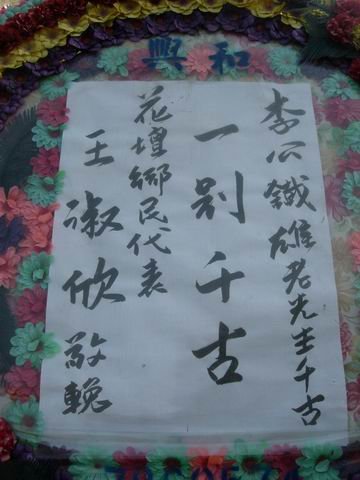 興和
李公鐵雄老先生千古
一別千古
花壇鄉民代表
王淑欣敬輓